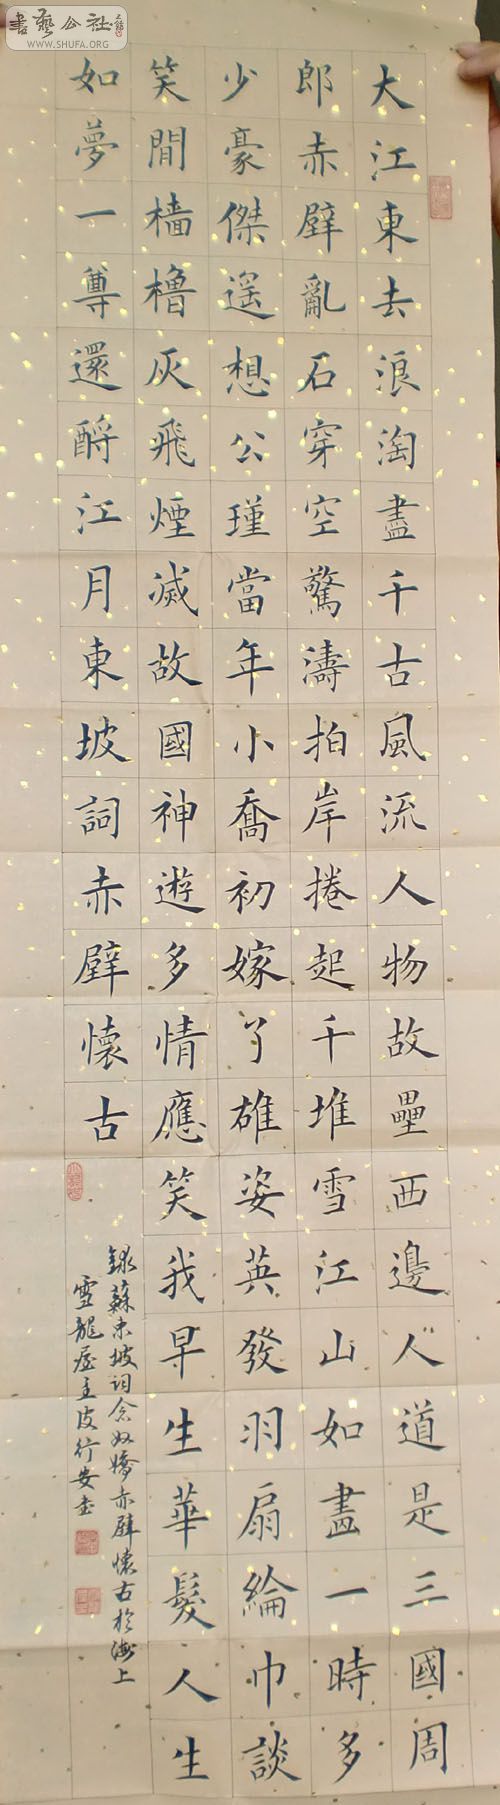 書藝公社
WWW.SHUFA.ORG
大江東去浪淘盡千古風流人物故壘西邊人道是三國周
郎赤壁亂石穿空驚濤拍岸捲起千堆雪江山如畫一時多
少豪傑遥想公瑾當年小喬初嫁了雄姿英發羽扇綸巾談
笑間檣櫓灰飛煙滅故國神遊多情應笑我早生華髮人生
如夢一尊還酹江月東坡詞赤壁懷古
録蘇東坡詞念奴嬌赤壁懷古於海上
雪龍屋主皮行安書